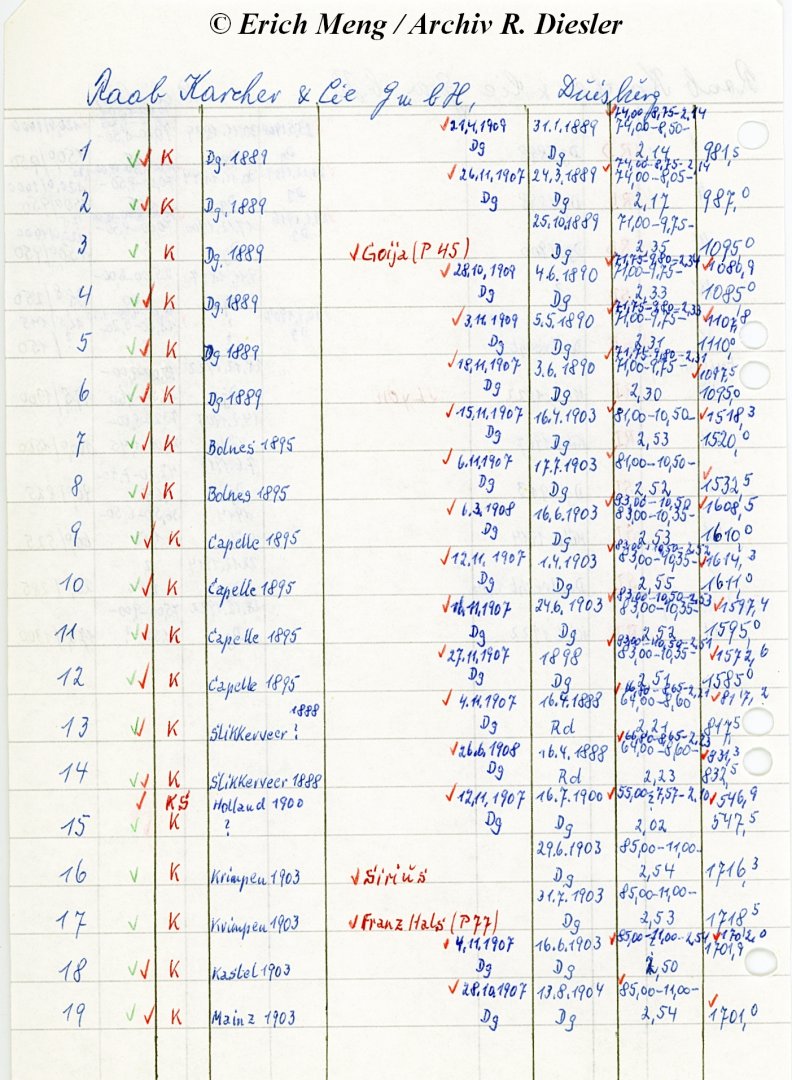 © Erich Meng / Archiv R. Diesler
Raab Karcher & Cie GmbH, Duisburg
74,00-8,75-2,14
21.4.1909 31.1.1889 74,00-8,50-
1 K Dg. 1889 Dg Dg 2,14 981,5
74,00-8,75-2,14
26.11.1907 24.3.1889 74,00-8,05-
2 K Dg. 1889 Dg Dg 2,17 987,0
25.10.1889 71,00-9,75-
3 K Dg. 1889 Goija (P 45) Dg 2,35 1095,0
71,75-9,80-2,34
28.10.1909 4.6.1890 71,00-9,75- 1086,9
4 K Dg. 1889 Dg Dg 2,33 1085,0
71,75-9,80-2,33
3.11.1909 5.5.1890 71,00-9,75- 1107,8
5 K Dg 1889 Dg Dg 2,31 1110,0
71,75-9,80-2,31
18.11.1907 3.6.1890 71,00-9,75- 1097,5
6 K Dg 1889 Dg Dg 2,30 1095,0
15.11.1907 16.4.1903 81,00-10,50- 1518,3
7 K Bolnes 1895 Dg Dg 2,53 1520,0
6.11.1907 17.7.1903 81,00-10,50-
8 K Bolnes 1895 Dg Dg 2,52 1532,5
83,00-10,50
6.3.1908 16.6.1903 83,00-10,35- 1608,5
9 K Capelle 1895 Dg Dg 2,53 1610,0
83,00-10,50-2,52
12.11.1907 1.4.1903 83,00-10,35- 1614,3
10 K Capelle 1895 Dg Dg 2,55 1611,0
83,00-10,50-2,53
16.11.1907 24.6.1903 83,00-10,35- 1597,4
11 K Capelle 1895 Dg Dg 2,52 1595,0
83,00-10,50-2,51
27.11.1907 1898 83,00-10,35- 1572,6
12 K Capelle 1895 Dg Dg 2,51 1585,0
66,80-8,65-2,21
4.11.1907 16.4.1888 64,00-8,60 817,2
1888
13 K Slikkerveer ? Dg Rd 2,21 817,5
66,80-8,65-2,23
26.6.1908 16.4.1888 64,00-8,60- 831,3
14 K Slikkerveer 1888 Dg Rd 2,23 832,5
KS Holland 1900 12.11.1907 16.7.1900 55,00-7,57-2,10 546,9
15 K ? Dg Dg ? 2,02 547,5
29.6.1903 85,00-11,00-
16 K Krimpen 1903 Sirius Dg 2,54 1716,3
31.7.1903 85,00-11,00-
17 K Krimpen 1903 Franz Hals (P77) Dg 2,53 1718,5
4.11.1907 16.6.1903 85,00-11,00-2,54 1702,0
1701,9
18 K Kastel 1903 Dg Dg 2,50
28.10.1907 13.8.1904 85,00-11,00-
19 K Mainz 1903 Dg Dg 2,54 1701,0